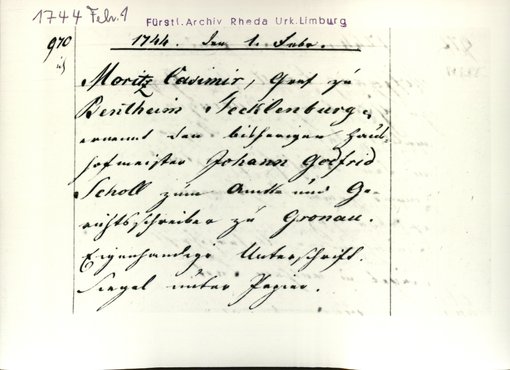 1744 Febr. 1
Fürstl. Archiv Rheda Urk. Limburg
970
1744. den 1. Febr.
Moritz Casimir, Graf zu
Bentheim Tecklenburg,
ernennt den bisherigen Haus-
hofmeister Johann Gotfrid
Scholl zum Amts und Ge-
richtsschreiber zu Gronau.
Eigenhändige Unterschrift.
Siegel unter Papier.